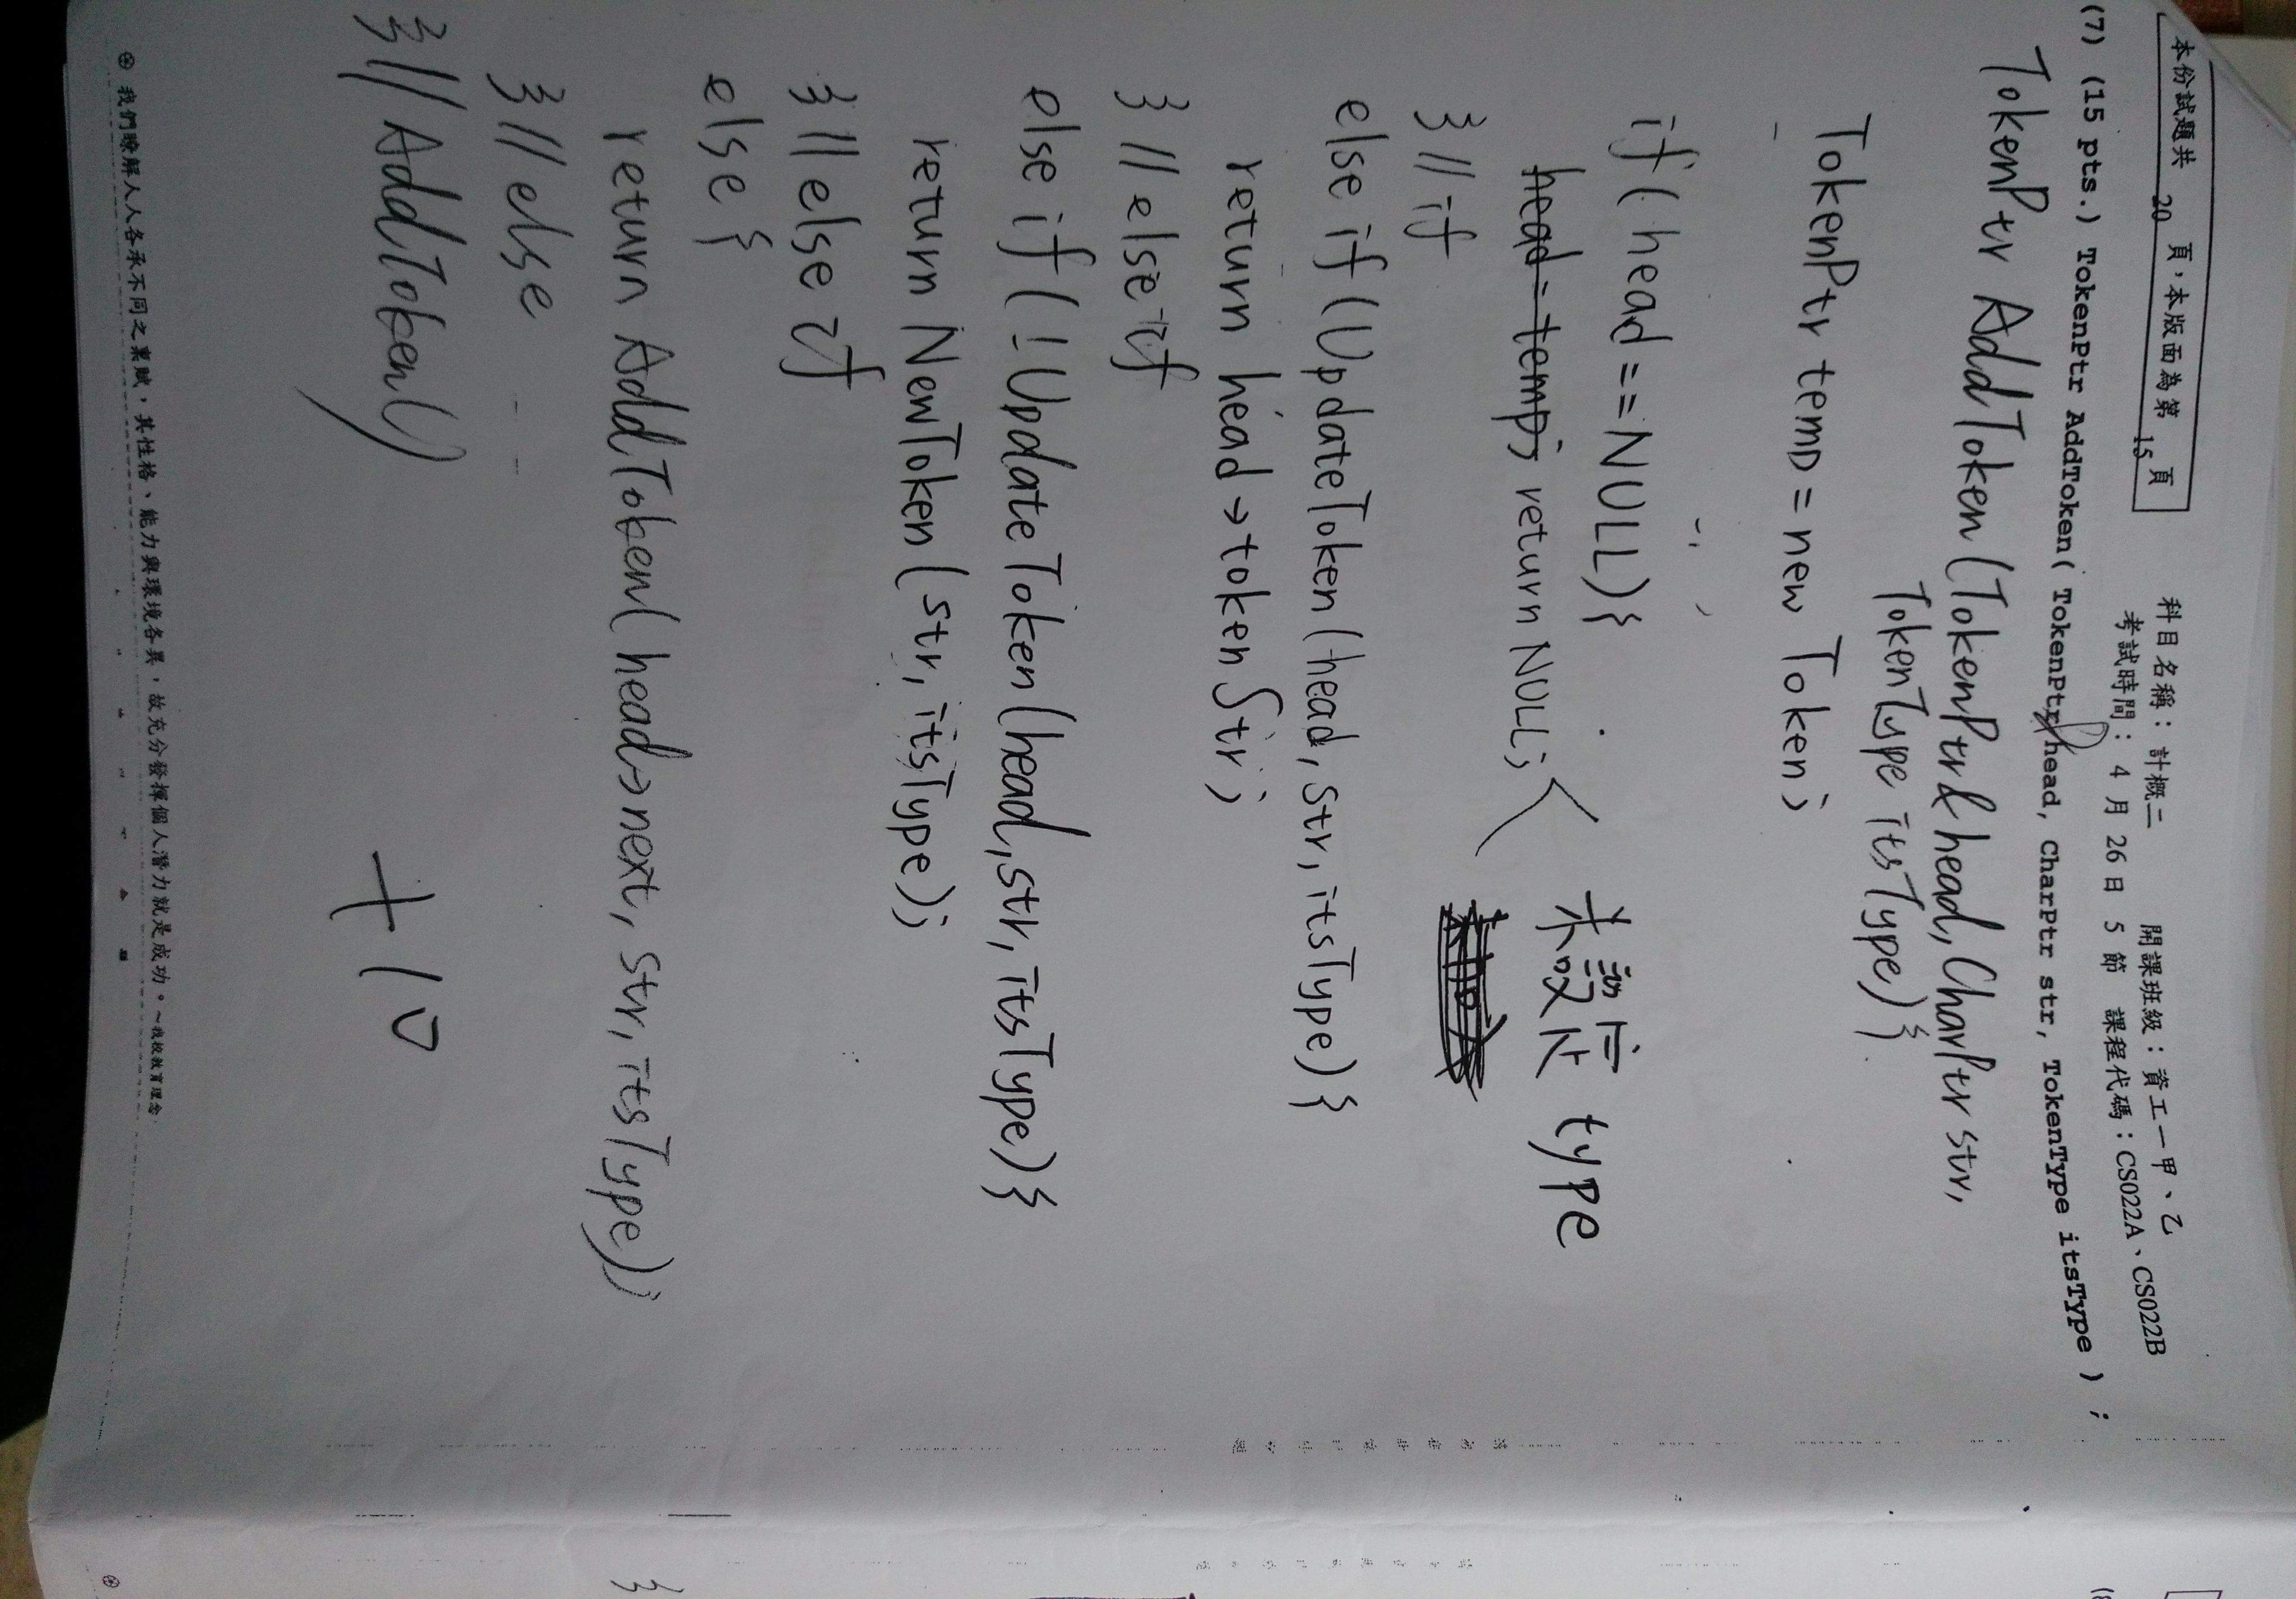 本份試題共 20 頁,本版面為第 15 頁
科目名稱: 計概二 開課班級:資工一甲、乙
考試時間: 4 月 26 日 5 節 課程代碼:CS022A、CS022B
(7) (15 pts.) TokenPtr AddToken( TokenPtr & head, CharPtr str, TokenType itsType ) ;
TokenPtr AddToken (TokenPtr & head, CharPtr str,
TokenType itsType) {
TokenPtr temp = new Token;
if ( head == NULL) {
head = temp; return NULL; 未設定 type
} // if
else if (UpdateToken (head, str, itsType) {
return head → tokenStr;
} // else if
else if ( ! UpdateToken (head, str, itsType) {
return NewToken (str, itsType);
} // else if
else {
return AddToken( head→next, str, itsType);
} // else
} // AddToken()
+10
⊕ 我們瞭解人人各承不同之稟賦,其性格、能力與環境各異,故充分發揮個人潛力就是成功。~我校教育理念